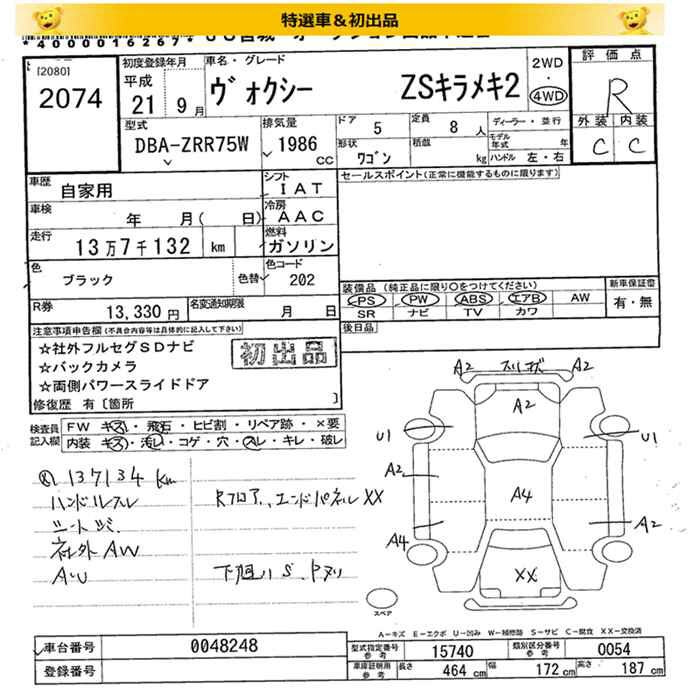 特選車＆初出品
*4000016267*
[2080]
2074
初度登録年月
平成
21年9月
車名・グレード
ヴォクシー ZSキラメキ2
2WD
4WD
評価点
R
外装 内装
C C
型式
DBA-ZRR75W
排気量
1986 CC
ドア 5
定員 8 人
形状 ワゴン
積載 kg
ディーラー・並行
モデル年式 年
ハンドル 左・右
車歴 自家用
シフト IAT
セールスポイント(正常に機能するものに限ります)
車検 年 月( 日)
冷房 AAC
走行 13万7千132 km
燃料 ガソリン
色 ブラック 色替
色コード 202
装備品 (純正品に限り○をつけてください)
PS PW ABS エアB AW
SR ナビ TV カワ
新車保証書
有・無
R券 13,330円
名変通知期限 月 日
後日品
注意事項申告欄(不具合内容等は具体的に記入して下さい)
☆社外フルセグSDナビ
☆バックカメラ
☆両側パワースライドドア
初出品
修復歴 有〔箇所 〕
検査員記入欄
FW キズ・飛石・ヒビ割・リペア跡・×要
内装 キズ・汚レ・コゲ・穴・スレ・キレ・破レ
137134 km
ハンドルスレ
シートシミ
社外AW
Rフロア、エンドパネルXX
A2 A2
A2
U1 U1
A2
A4
A2
A4
XX
スペア
A-キズ E-エクボ U-凹み W-補修跡 S-サビ C-腐食 XX-交換済
車台番号 0048248
登録番号
型式指定番号 参考 15740
類別区分番号 参考 0054
車庫証明用 参考 長さ 464 cm 幅 172 cm 高さ 187 cm